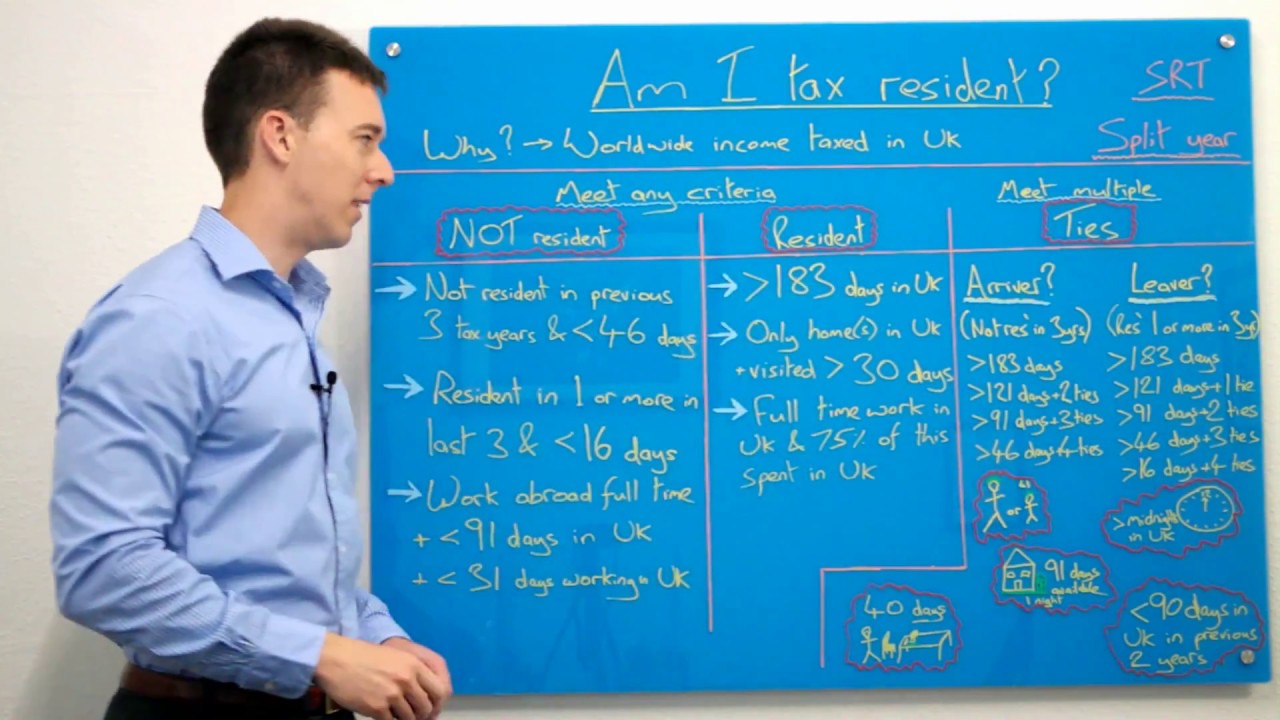 Am I tax resident?
SRT
Why? → Worldwide income taxed in UK
Split year
Meet any criteria
NOT resident
→ Not resident in previous
3 tax years & <46 days
→ Resident in 1 or more in
last 3 & <16 days
→ Work abroad full time
+ <91 days in UK
+ < 31 days working in UK
Resident
→ >183 days in UK
→ Only home(s) in UK
+visited > 30 days
→ Full time work in
UK & 75% of this
spent in UK
Meet multiple
Ties
Arriver?
(Not res' in 3yrs)
>183 days
>121 days+2 ties
>91 days+3 ties
>46 days 4 ties
Leaver?
(Res' 1 or more in 3yrs)
>183 days
>121 days+1 tie
>91 days+2 ties
>46 days+3 ties
>16 days+4 ties
or
>midnights
in UK
91 days
available
1 night
40 days
<90 days in
UK in previous
2 years